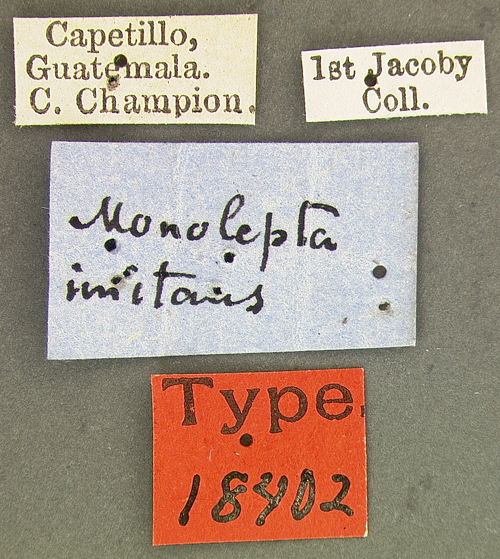 Capetillo,
Guatemala.
C. Champion.
1st Jacoby
Coll.
Monolepta
imitans
Type.
18402